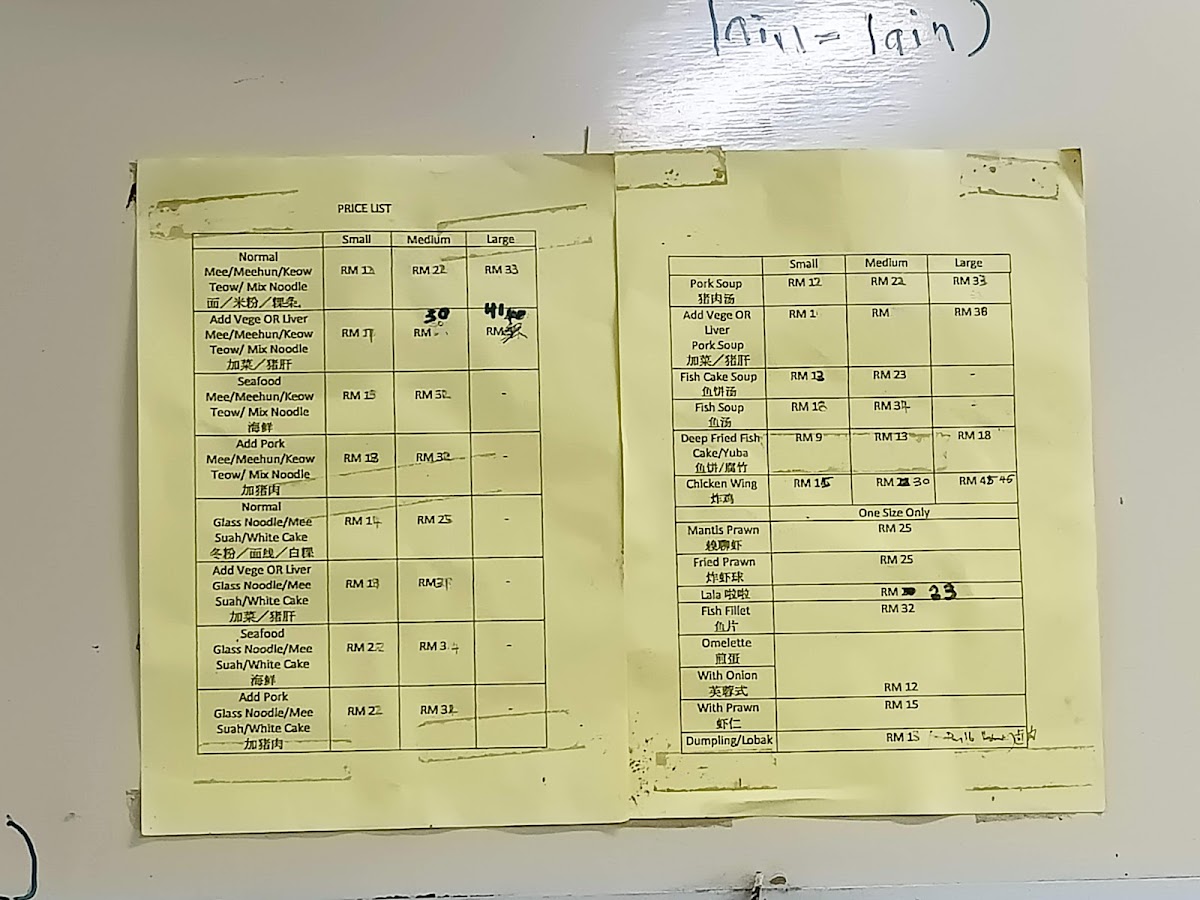 lain = lain)
PRICE LIST
Small Medium Large
Normal
Mee/Meehun/Keow RM 12 RM 22 RM 33
Teow/ Mix Noodle
面／米粉／粿条
30 41
Add Vege OR Liver
Mee/Meehun/Keow RM RM RM
Teow/ Mix Noodle
加菜／猪肝
Seafood
Mee/Meehun/Keow RM RM -
Teow/ Mix Noodle
海鲜
Add Pork
Mee/Meehun/Keow RM RM -
Teow/ Mix Noodle
加猪肉
Normal
Glass Noodle/Mee RM 14 RM 25 -
Suah/White Cake
冬粉／面线／白粿
Add Vege OR Liver
Glass Noodle/Mee RM RM -
Suah/White Cake
加菜／猪肝
Seafood
Glass Noodle/Mee RM RM -
Suah/White Cake
海鲜
Add Pork
Glass Noodle/Mee RM RM -
Suah/White Cake
加猪肉
Small Medium Large
Pork Soup RM 12 RM 22 RM 33
猪肉汤
Add Vege OR RM RM RM 38
Liver
Pork Soup
加菜／猪肝
Fish Cake Soup RM 13 RM 23 -
鱼饼汤
Fish Soup RM RM -
鱼汤
Deep Fried Fish RM 9 RM 13 RM 18
Cake/Yuba
鱼饼/腐竹
Chicken Wing RM 15 RM 30 RM 45 45
炸鸡
One Size Only
Mantis Prawn RM 25
虾
Fried Prawn RM 25
炸虾球
Lala 啦啦 RM 23
Fish Fillet RM 32
鱼片
Omelette
煎蛋
With Onion
芙蓉式 RM 12
With Prawn RM 15
虾仁
Dumpling/Lobak RM